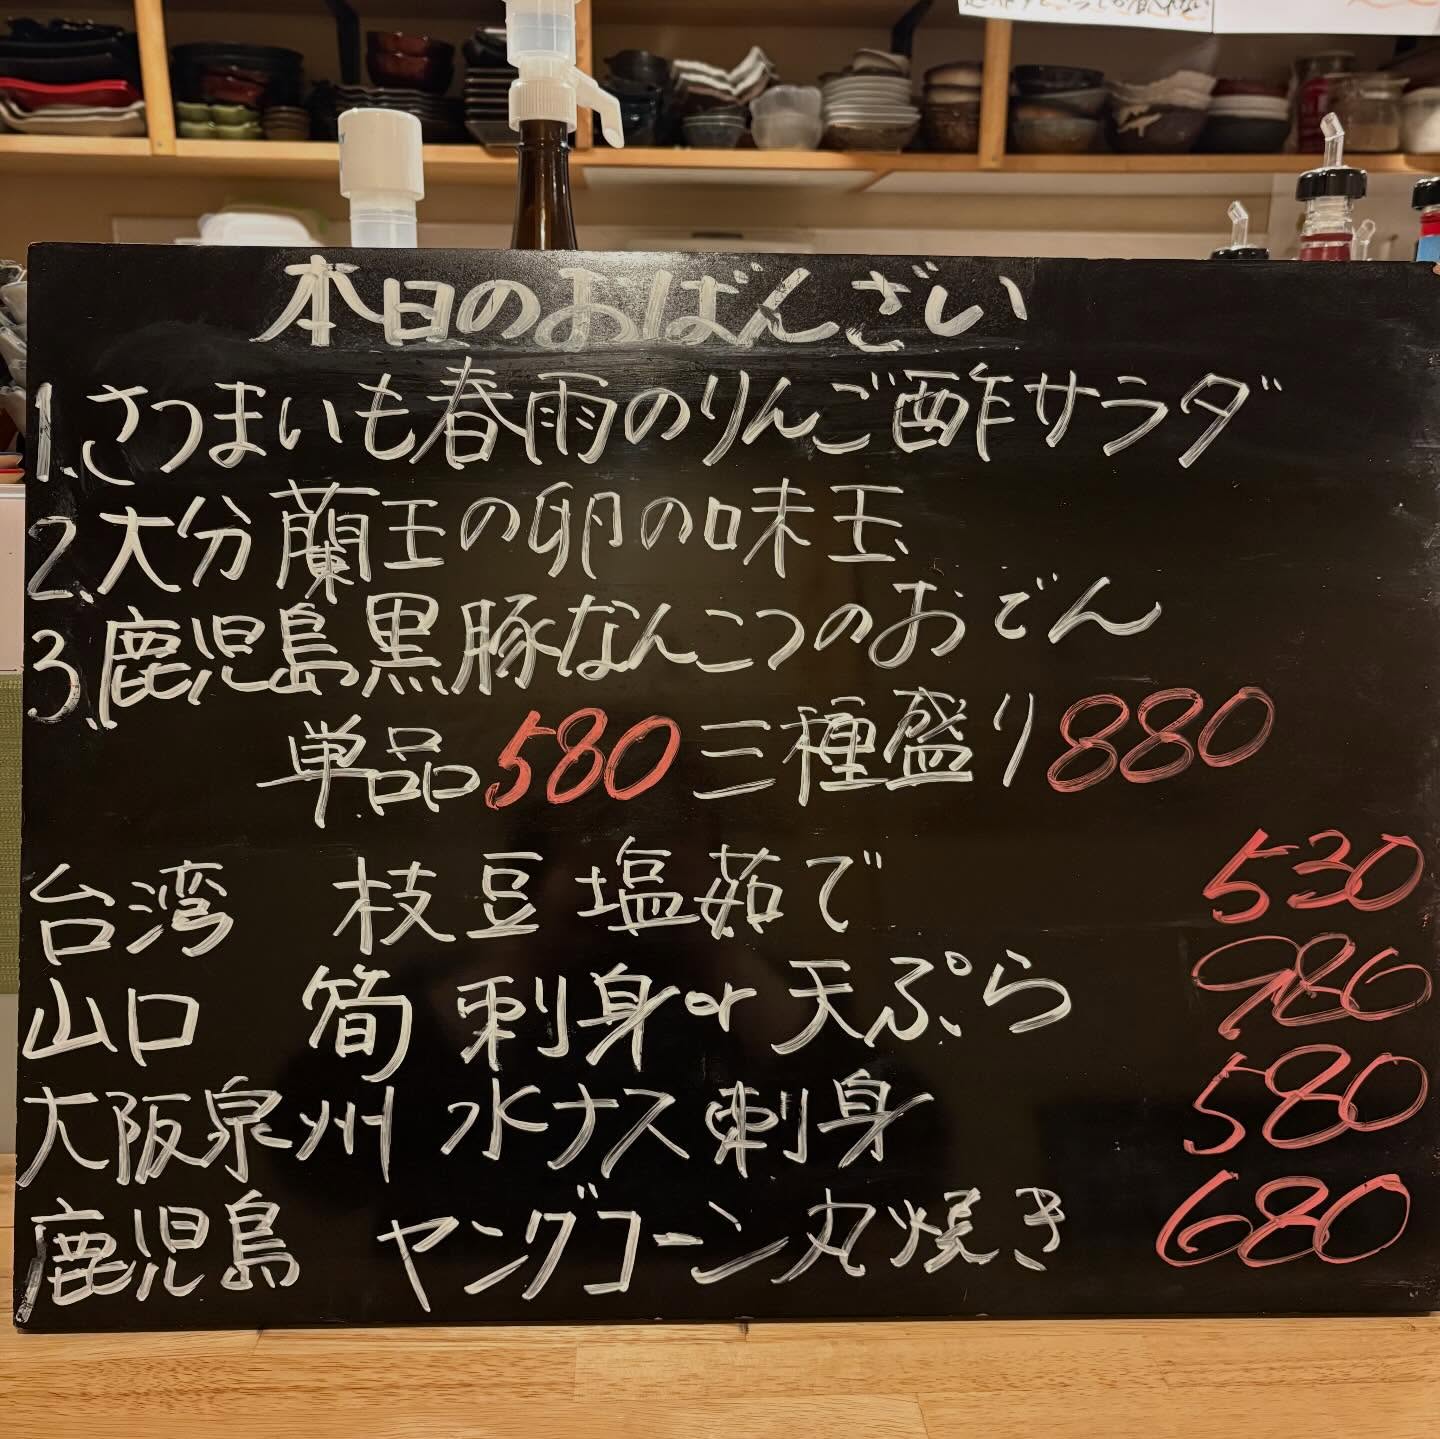 本日のおばんざい
1.さつまいも春雨のりんご酢サラダ
2.大分蘭王の卵の味玉
3.鹿児島黒豚なんこつのおでん
単品580 三種盛り880
台湾 枝豆塩茹で 530
山口 筍 刺身or天ぷら 980
大阪泉州 水ナス刺身 580
鹿児島 ヤングコーン丸焼き 680